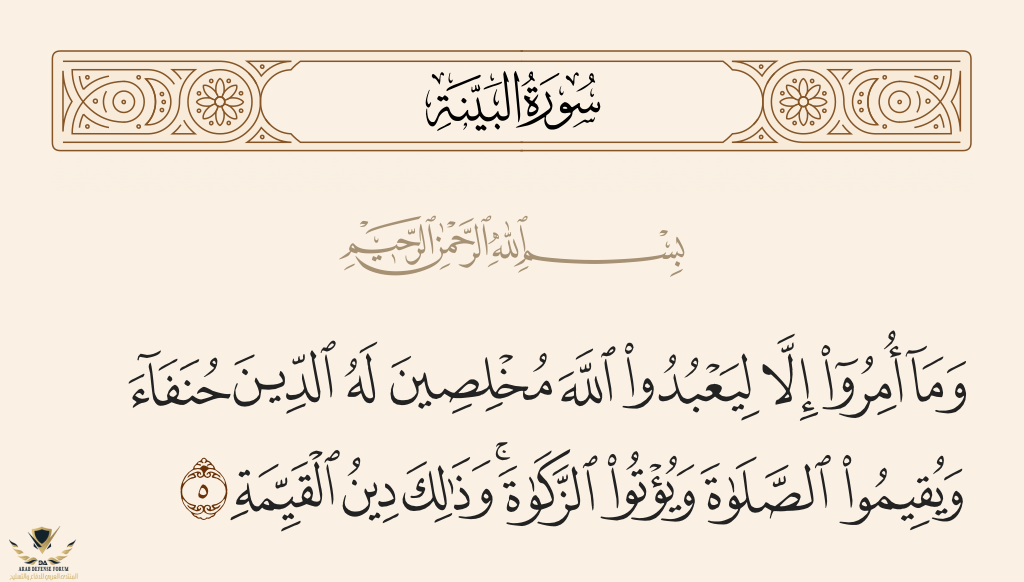 سُورَةُ البَيِّنَةِ
بِسْمِ ٱللَّهِ ٱلرَّحْمَٰنِ ٱلرَّحِيمِ
وَمَآ أُمِرُوٓا۟ إِلَّا لِيَعْبُدُوا۟ ٱللَّهَ مُخْلِصِينَ لَهُ ٱلدِّينَ حُنَفَآءَ
وَيُقِيمُوا۟ ٱلصَّلَوٰةَ وَيُؤْتُوا۟ ٱلزَّكَوٰةَ ۚ وَذَٰلِكَ دِينُ ٱلْقَيِّمَةِ ٥
DA
ARAB DEFENSE FORUM
المنتدى العربي للدفاع والتسليح